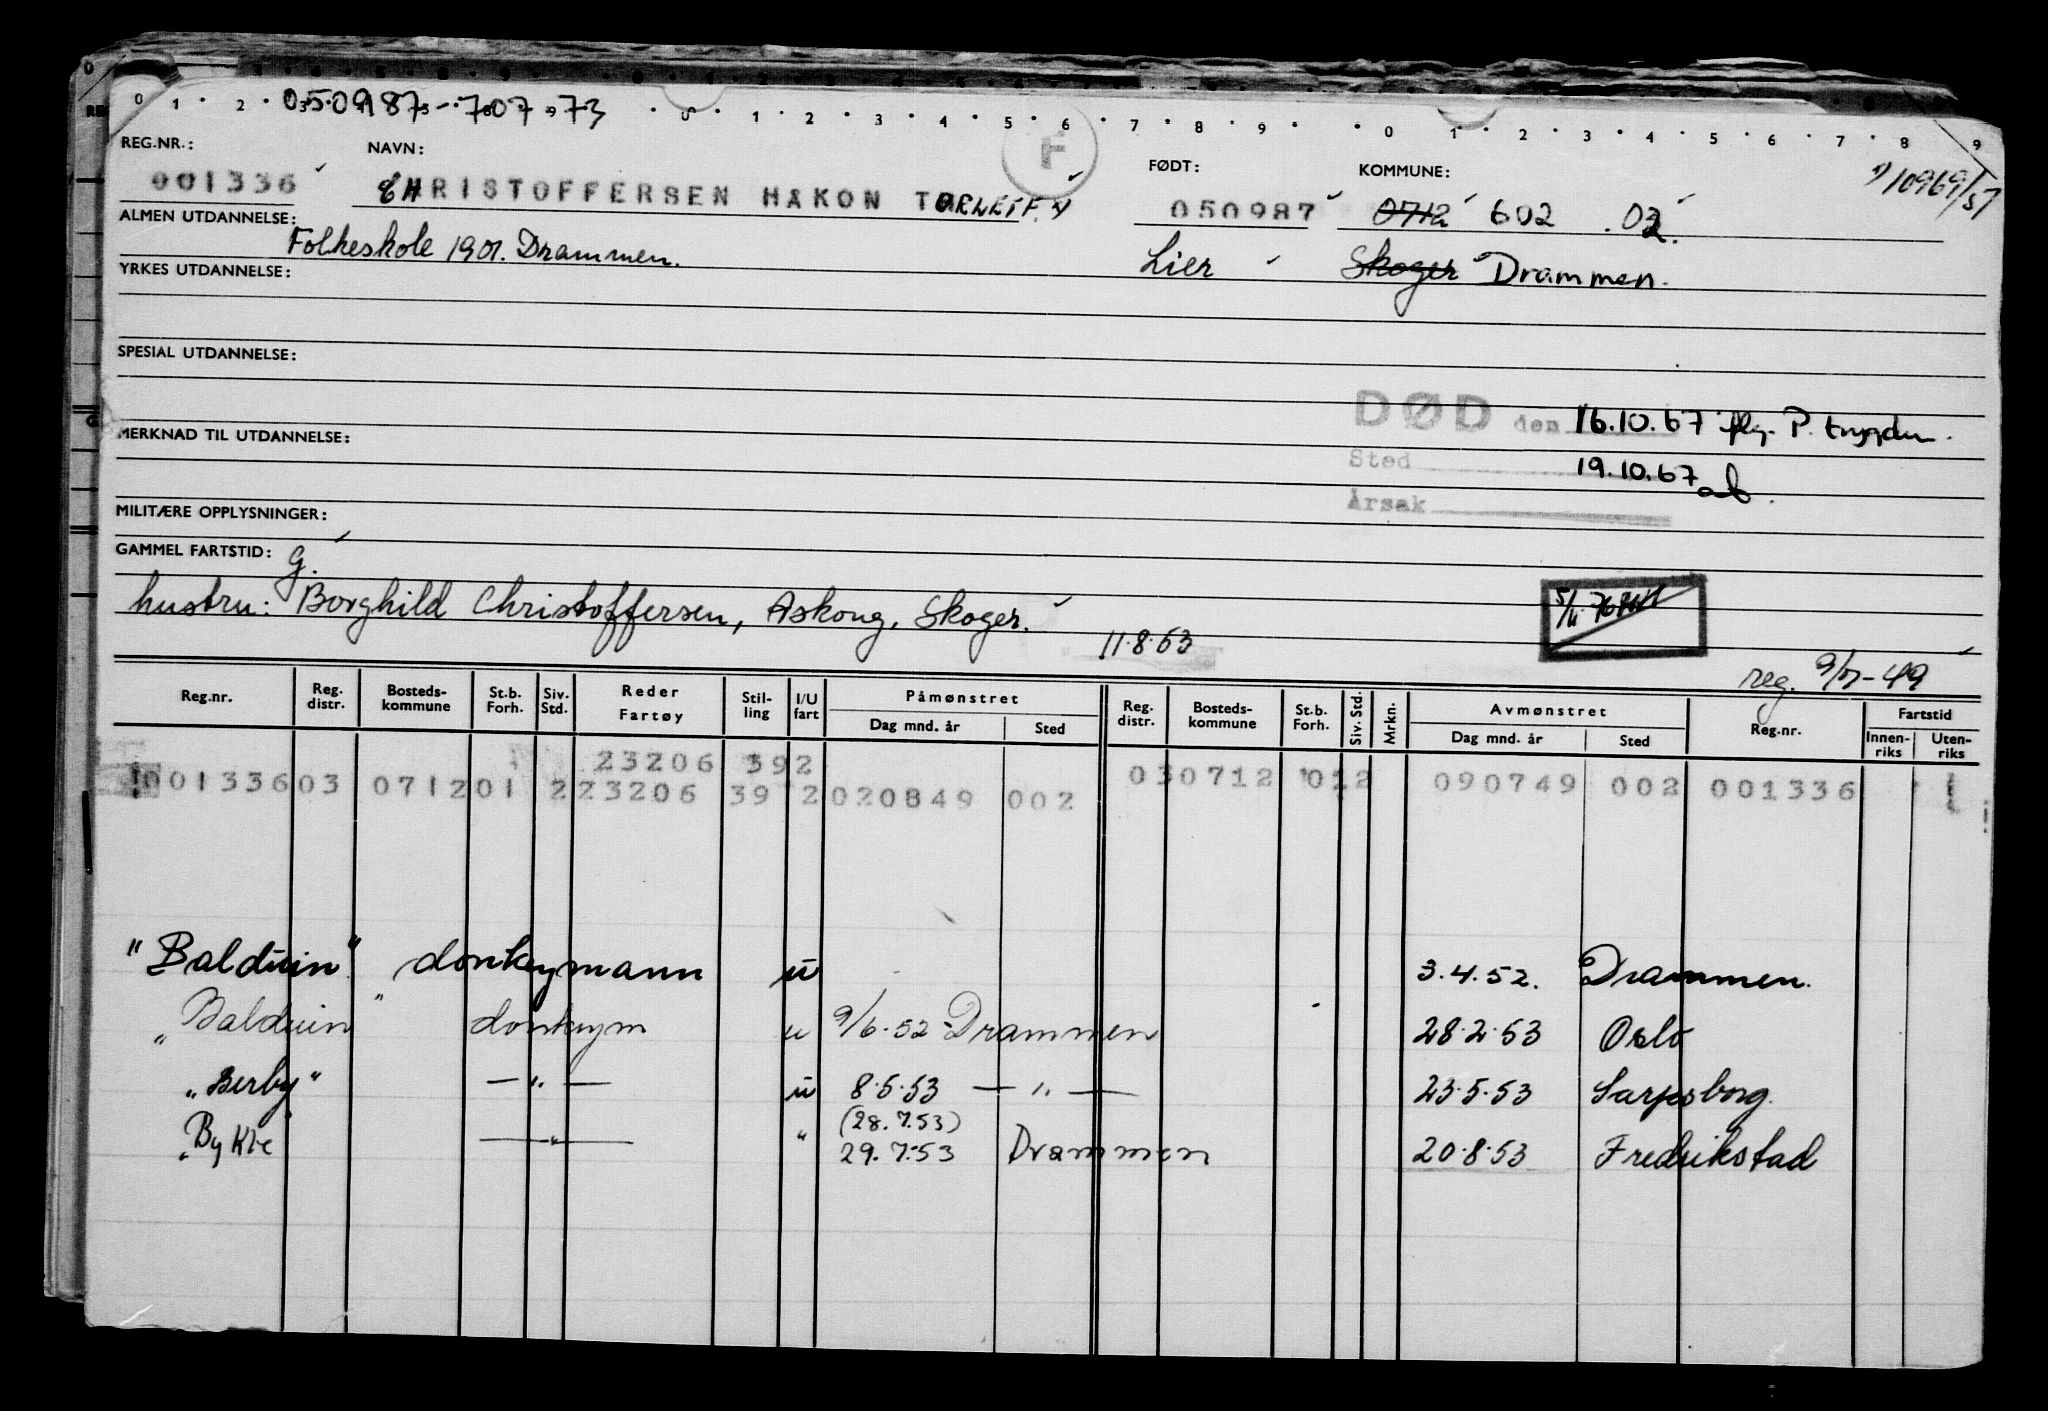 050987
REG.NR.: NAVN: FØDT: KOMMUNE:
001336 CHRISTOFFERSEN HAKON TORLEIF. 050987 0712 602 .02. 10969/57
F
ALMEN UTDANNELSE: Folkeskole 1901. Drammen. Lier Skoger Drammen.
YRKES UTDANNELSE:
SPESIAL UTDANNELSE:
DØD den 16.10.67 flg. P. trygden.
MERKNAD TIL UTDANNELSE:
Sted 19.10.67
Årsak
MILITÆRE OPPLYSNINGER:
GAMMEL FARTSTID: G.
hustru: Borghild Christoffersen, Askong, Skoger.
11.8.53
reg. 9/7-49
Reg.nr. Reg. distr. Bosteds-kommune St.b. Forh. Siv. Std. Reder Fartøy Stil-ling I/U fart Påmønstret Dag mnd. år Sted Reg. distr. Bosteds-kommune St.b. Forh. Siv. Std. Mrkn. Avmønstret Dag mnd. år Sted Reg.nr. Fartstid Innen-riks Uten-riks
23206 392 030712 012 090749 002 001336
001336 03 0712 01 2 23206 39 2 020849 002
"Balduin" donkeymann u 3.4.52. Drammen.
"Balduin" donkeym u 9/6-52 - Drammen 28.2.53 Oslo
"Berby" — " — u 8.5.53 — " — 23.5.53 Sarpsborg.
(28.7.53)
"Bykle — " — " 29.7.53 Drammen 20.8.53 Fredrikstad